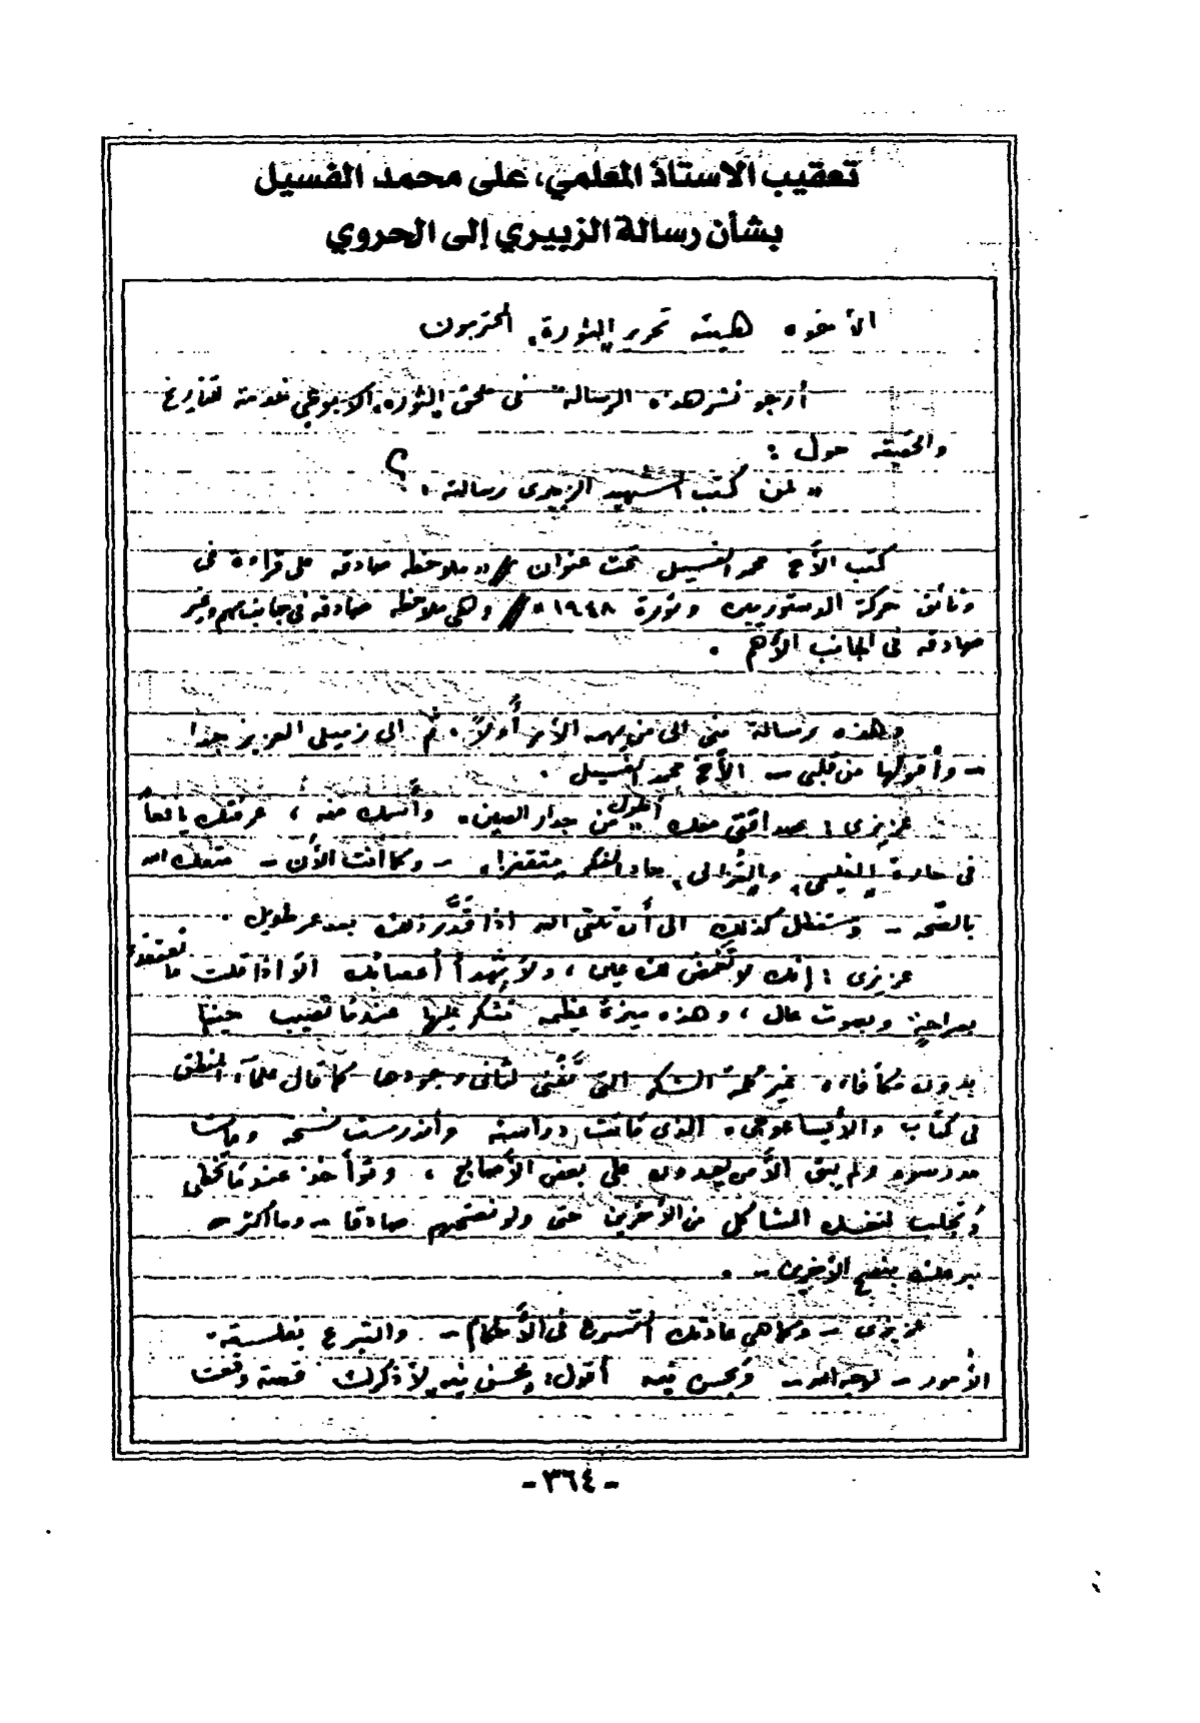 تعقيب الاستاذ المعلمي، على محمد الفسيل
بشأن رسالة الزبيري إلى الحروي
الأخوه هيئة تحرير "الثورة" المحترمون
أرجو نشر هذه الرسالة في ملحق "الثورة" الاسبوعي خدمة للتاريخ
والحقيقه حول :
" لمن كتب الشهيد الزبيري رسالته " ؟
كتب الأخ محمد الفسيل تحت عنوان // " ملاحظه صادقه على قراءة في
وثائق حركة الدستوريين وثورة ١٩٤٨ " // وهي ملاحظه صادقه في جانب مهم وغير
صادقه في الجانب الأهم .
وهذه رسالة مني الى من يهمه الأمر أولاً . ثم الى زميلي العزيز جدا
- وأقولها من قلبي - الأخ محمد الفسيل .
عزيزي : صداقتي معك أطول من جدار "الصين" وأسمك منه ، عرفتك يافعاً
في حارة "الفليحي" و حاد الفكر متقفزا - وكما أنت الأن - متعك الله
بالصحه - وستظل كذلك الى أن تلقى الله اذا قدَّر ذلك بعد عمر طويل .
عزيزي : إنك لا تغمض عينك على ، ولا تهدأ أعصابك الا اذا قلت ما تعتقده
بصراحةٍ وبصوت عال ، وهذه ميزة عظيمه تشكر عليها عندما تصيب حيناً
بدون مكأفاءه غير كلمة الشكر التي وجودها كما قال علمآء المنطق
في كتاب "الأيساغوجي" الذي كانت دراسته وأندرست نسخه ومات
مدرسوه ولم يبق الأمن يعدون على بعض الأصابع ، وتوأخذ عندما تخطي
وتجلب لنفسك المشاكل من الأخرين حتى ولو نصحتهم صادقا - وما أكثر
تبرعك بنصح الأخرين - .
عزيزي - وكما هي عادتك في الأحكام - والتبرع بفلسفة
الأمور - لوجه الله - وبحسن نيه أقول : وبحسن نيه لأذكرك قصة وقعت
- ٣٦٤ -